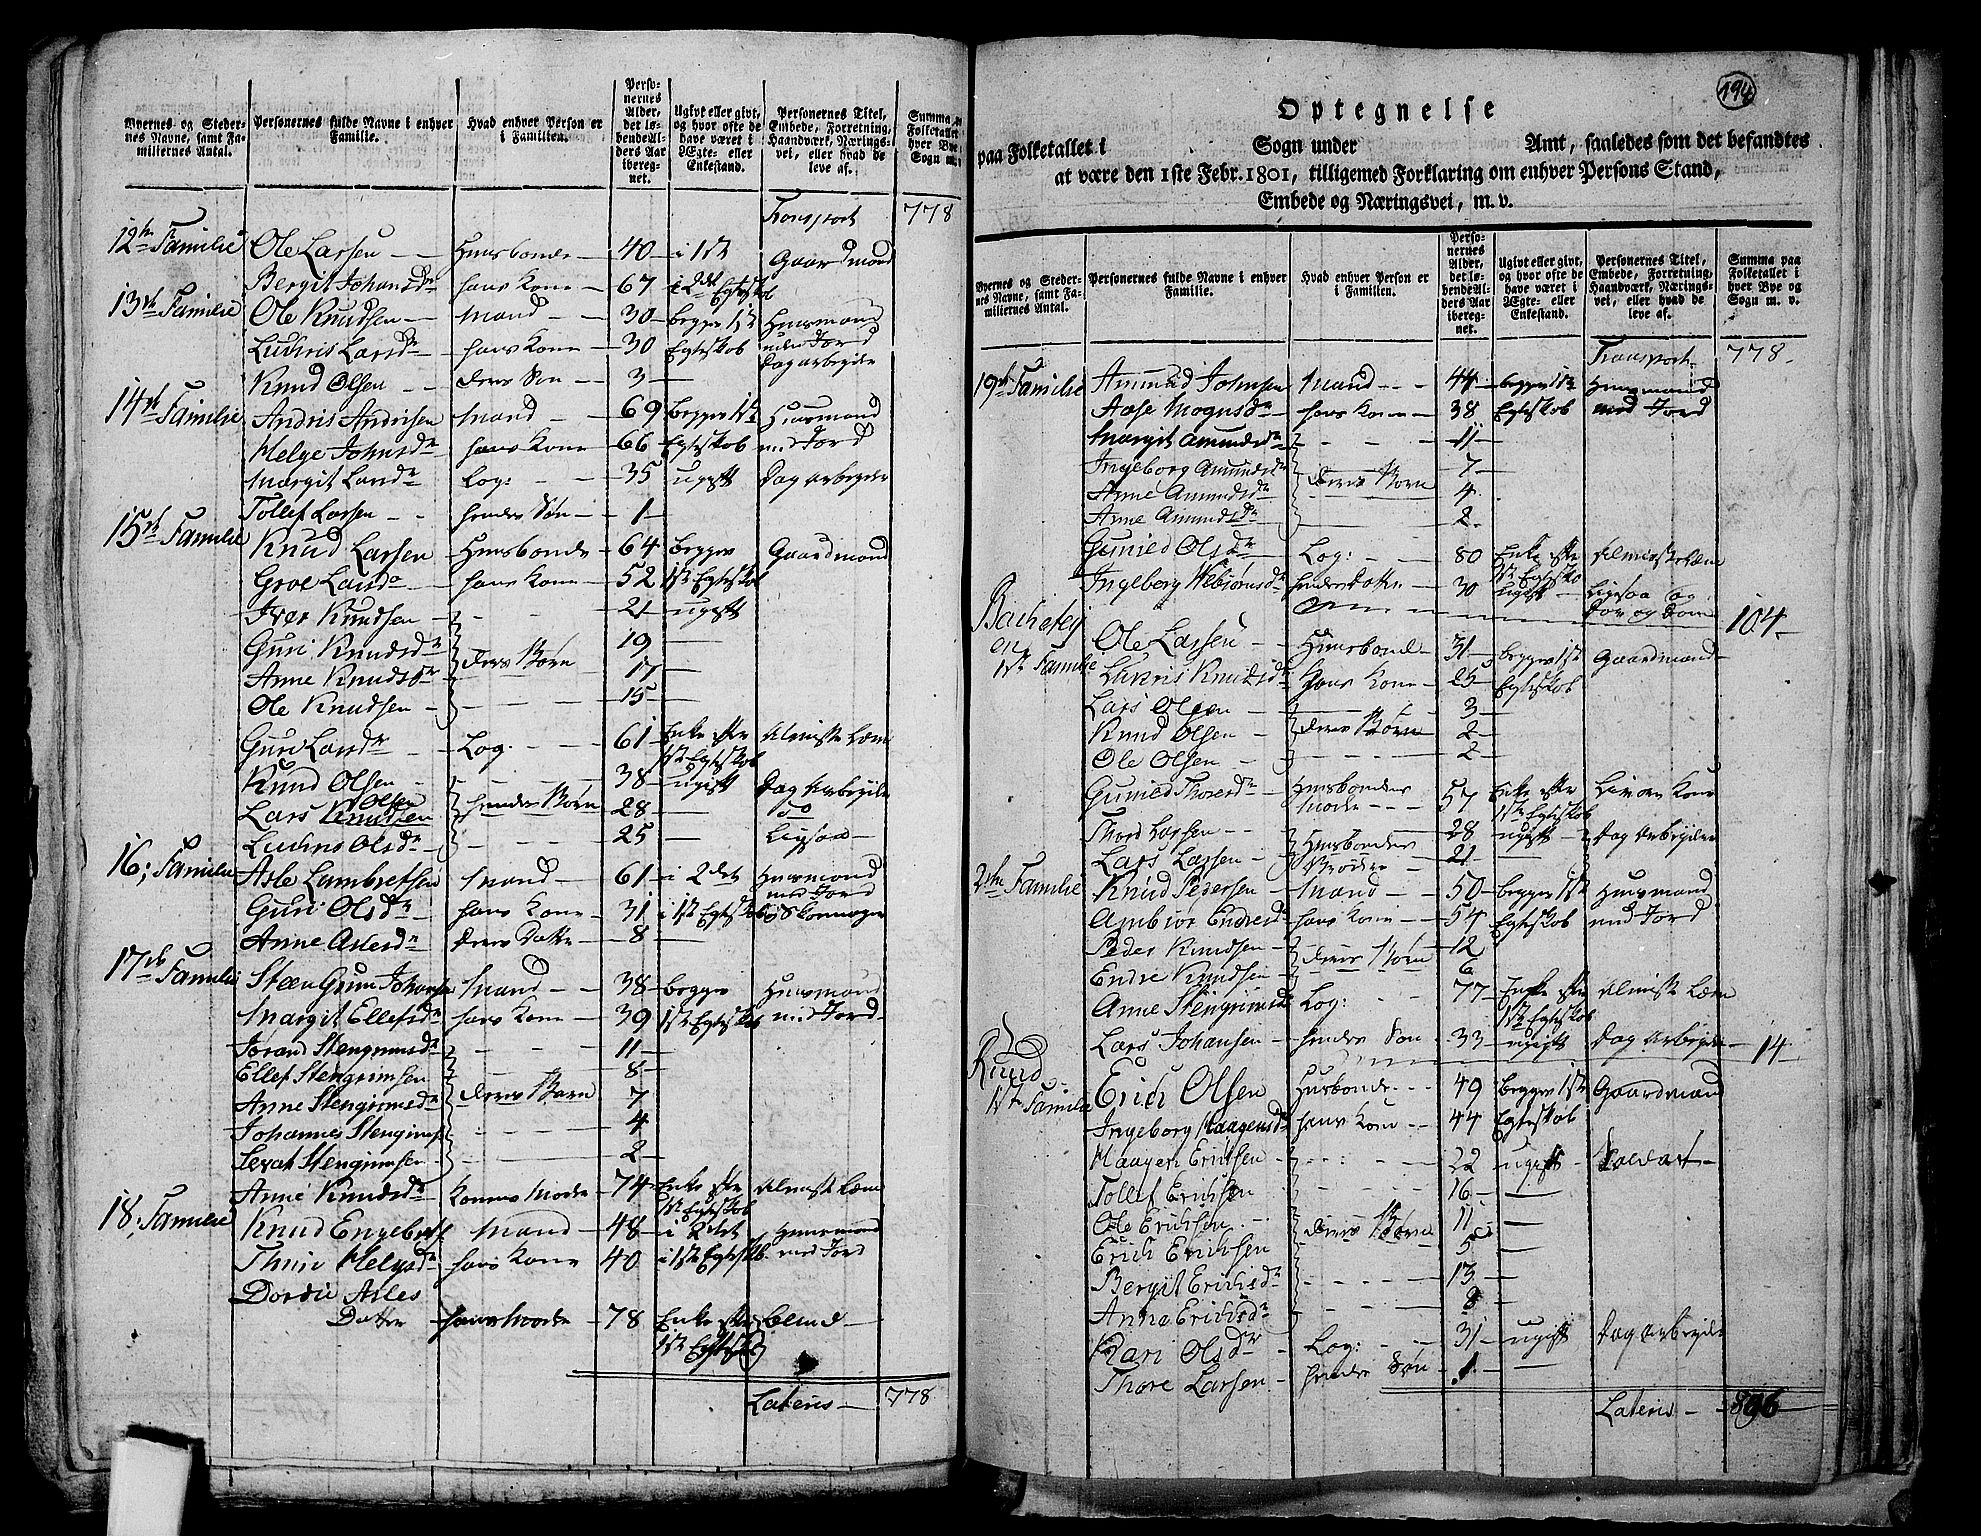 Byernes og Steder-
nes Navne, samt Fa-
miliernes Antal.
Personernes fulde Navne i enhver
Familie.
Hvad enhver Person er
i Familien.
Perso-
nernes
Alder,
det lø-
bende Al-
ders Aar
ibereg-
net.
Ugivt eller givt,
og hvor ofte de
have været i
Ægte- eller
Enkestand.
Personernes Titel,
Embede, Forretning,
Haandværk, Nærings-
vei, eller hvad de
leve af.
Summa
Folketallet
hver Bye
Sogn m.
Transport 778
12te Familie Ole Larsen - - Huusbonde - 40 - i 1ste Gaardmand
Bergit Johansdr hans Kone - 67 i 2det Egteskab
13de Familie Ole Knudsen - Mand - 30 - begge 1ste Huusmand
Luchris Larsdr hans Kone - 30 Egteskab uden Jord
Dagarbeyder
Knud Olsen - deres Søn - 3 -
14de Familie Andris Andrisen Mand - 69 begge 1ste Huusmand
Helge Johnsdr hans Kone 66 Egteskab med Jord
Margit Larsdr Log: - - 35 ugift Dag arbeyder
Tollef Larsen - - hendes Søn - 1 -
15de Familie Knud Larsen Huusbonde 64 begges Gaardmand
Groe Larsdr hans Kone - 52 1ste Egteskab
Iver Knudsen - - 21 - ugift
Guri Knudsdr 19 -
Anne Knudsdr deres Børn 17 -
Ole Knudsen - 15 -
Guri Larsdr Log. - - 61 Enke efter Almisse Lem
1ste Egteskab
Knud Olsen - 38 - ugift Dag Arbeyder
Olsen
Lars Knudsen hendes Børn 28 - do
Luchris Olsdr 25 - Ligesaa -
16; Familie Asle Lambretsen Mand - 61 - i 2det Huusmand
med Jord
Guri Olsdr hans Kone - 31 i 1ste Egteskab og Skomager
Anne Aslesdr deres Datter - 8 -
17de Familie Steen Grim Johansen Mand - 38 - begges Huusmand
Margit Ellefsdr hans Kone - 39 1ste Egteskab med Jord -
Jorand Stengrimsdr 11 -
Ellef Stengrimsen 8 -
Anne Stengrimsdr deres Børn 7
Johannes Stengrims 4
Sevat Stengrimsen - 2 -
Anne Knudsdr Konens Moder - 74 - Enke efter Almisse Lem
1ste Egteskab
18; Familie Knud Engebretsen Mand - 48 - i 2det Huusmand
Thuri Helgesdr hans Kone 40 i 1ste Egteskab med Jord
Dordie Asles
Datter hans Moder - 78 Enke efter blind -
1ste Egteskab
Lateris - 778
194
Optegnelse
paa Folketallet i Sogn under Amt, saaledes som det befandtes
at være den 1ste Febr. 1801, tilligemed Forklaring om enhver Persons Stand,
Embede og Næringsvei, m. v.
Byernes og Steder-
nes Navne, samt Fa-
miliernes Antal.
Personernes fulde Navne i enhver
Familie.
Hvad enhver Person er
i Familien.
Perso-
nernes
Alder,
det lø-
bende Al-
ders Aar
ibereg-
net.
Ugivt eller givt,
og hvor ofte de
have været i
Ægte- eller
Enkestand.
Personernes Titel,
Embede, Forretning,
Haandværk, Nærings-
vei, eller hvad de
leve af.
Summa paa
Folketallet i
hver Bye og
Sogn m. v.
Transport 778 -
19de Familie Ammund Johnsen Mand - - 44 - begge 1ste Huusmand
Aase Mogensdr hans Kone - 38 Egteskab med Jord
Margit Amundsdr - - - 11 -
Ingeborg Amundsdr 7 -
Anne Amundsdr deres Børn 4 -
Anne Amundsdr 2 -
Gunild Olsdr Log: - - 80 Enke efter Almisse Lem
1ste Egteskab
Ingeborg Webiørnsdr hendes Datter - 30 ugift - Ligesaa og
Døv og Dom 104 -
Ole Larsen Huusbonde - 31 - begge 1ste Gaardmand -
1ste Familie Luchris Knudsdr hans Kone - 25 Egteskab
Lars Olsen - 3 -
Knud Olsen - deres Børn 2 -
Ole Olsen - 2 -
Gunild Thoresdr Huusbondens
Moder - - - 57 Enke efter
1ste Egteskab
Thore Larsen - - Huusbondens 28 - ugift - Dag Arbeyder
Lars Larsen - Brødre 21 -
2den Familie Knud Pedersen - Mand - 50 - begge 1ste Huusmand
Ambior Endresdr hans Kone - 54 Egteskab med Jord
Peder Knudsen - 12
Endre Knudsen - deres Børn 6 -
Anne Stengrimsdr Log: - - 77 - Enke efter Almisse Lem
1ste Egteskab
Lars Johansen - hendes Søn - 33 - ugift Dag Arbeyder - 14 -
Ruud -
1ste Familie Erich Olsen Husbonde - - 49 begge 1ste Gaardmand
Ingeborg Haagensdr hans Kone - 44 Egteskab
Haagen Erichsen 22 - ugift - Soldat -
Tollef Erichsen 16 - -
Ole Erichsen - - deres Børn 11 - -
Erich Erichsen 5 -
Bergit Erichsdr 13 -
Anne Erichsdr 8 -
Kari Olsdr Log: - - 31 - ugift Dag Arbeyder
Thore Larsen - hendes Søn - 1 -
Lateris - 896